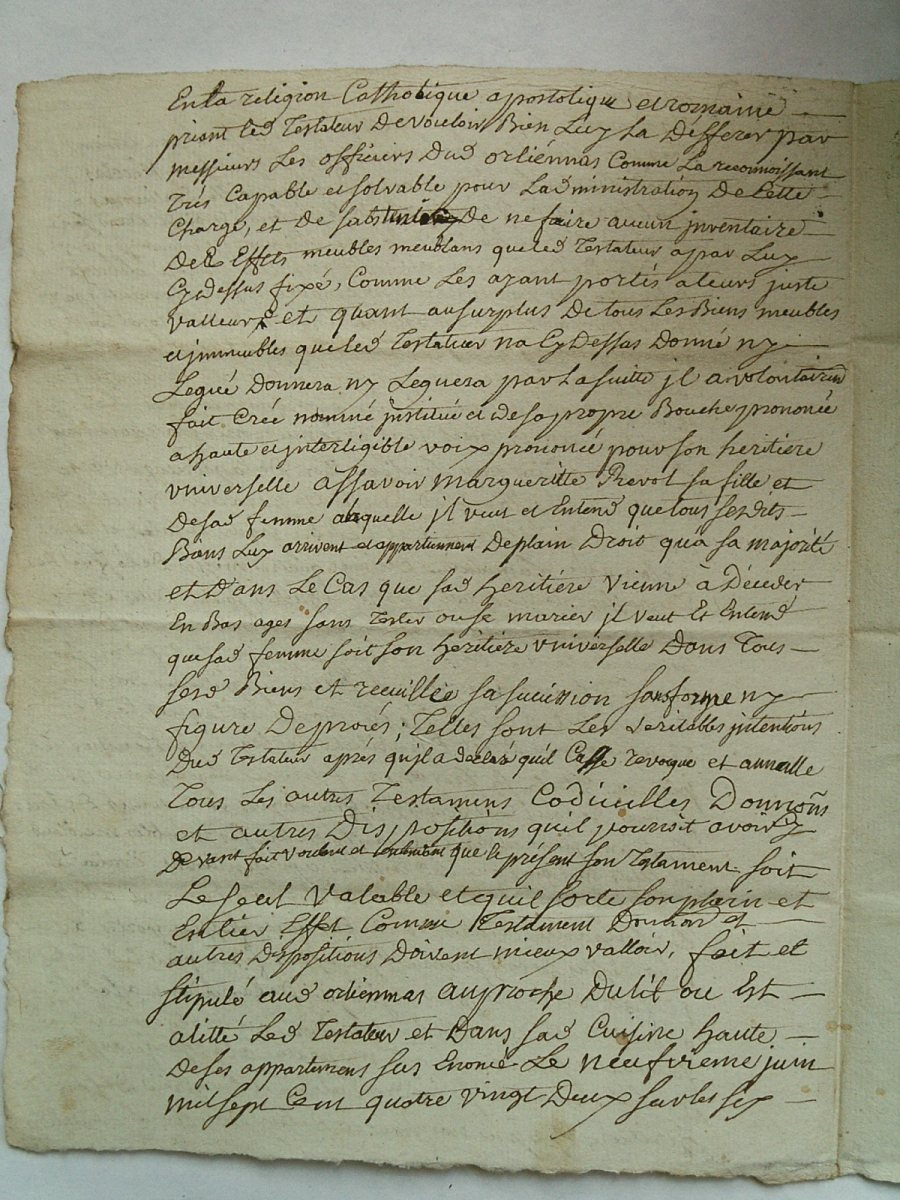 En la religion Catholique apostolique et romaine
priant led Testateur De vouloir Bien Luy la Defferer par
messieurs Les officiers Dud orliénnas Comme La reconnoissant
Trés Capable et solvable pour Ladministration De Cette
Charge, et De De ne faire aucun jnventaire
Des Effets meubles meublans que led Testateur a par Luy
Cydessus fixé, Comme Les ayant portés a leurs juste
valleur, et quant au surplus De tous Les Biens meubles
et jmmeubles que led Testateur na Cy Dessus Donné ny
Legué Donnera ny Leguera par La suitte jl a volontairemt
fait Créé nommé jnstitué et de sa propre Bouche prononcé
a haute et jnterligible voix prononcé pour son heritiére
vniverselle assavoir margueritte Prevot sa fille et
De sad femme alaquelle jl veut et Entend que tous sesdits
Bans Lux arrivent et appartiennent De plain Droit qu'a sa majorité
et D'ans Le Cas que sad heritiére vienne à Déceder
En Bas ages sans Tester ou se marier jl veut Et Entend
que sad femme soit son héritiére vniverselle Dans Tous
sesd Biens et recuillie sa sucission sans forme ny
figure De procés; Telles sont Les veritables jntentions
Dud Testateur aprés qujl a declaré quil Casse revoque et annulle
Tous Les autres Testamens Codicielles Donnaons
et autres Dispositions quil pourroit avoir Cy
Devant fait voulant et que le présent son Testament soit
Le seul Valeable et quil sorte son plein et
Entier Effet Comme Testament Donnaon et
autres Dispositions Doivent mieux valloir, fait et
stipulé aud orliennas auproche Du lit ou Est
alitté Led Testateur et Dans sad Cuisine haute
De ses appartemens sus Enoncé Le neufvieme juin
mil sept Cent quatre vingt Deux sur les six